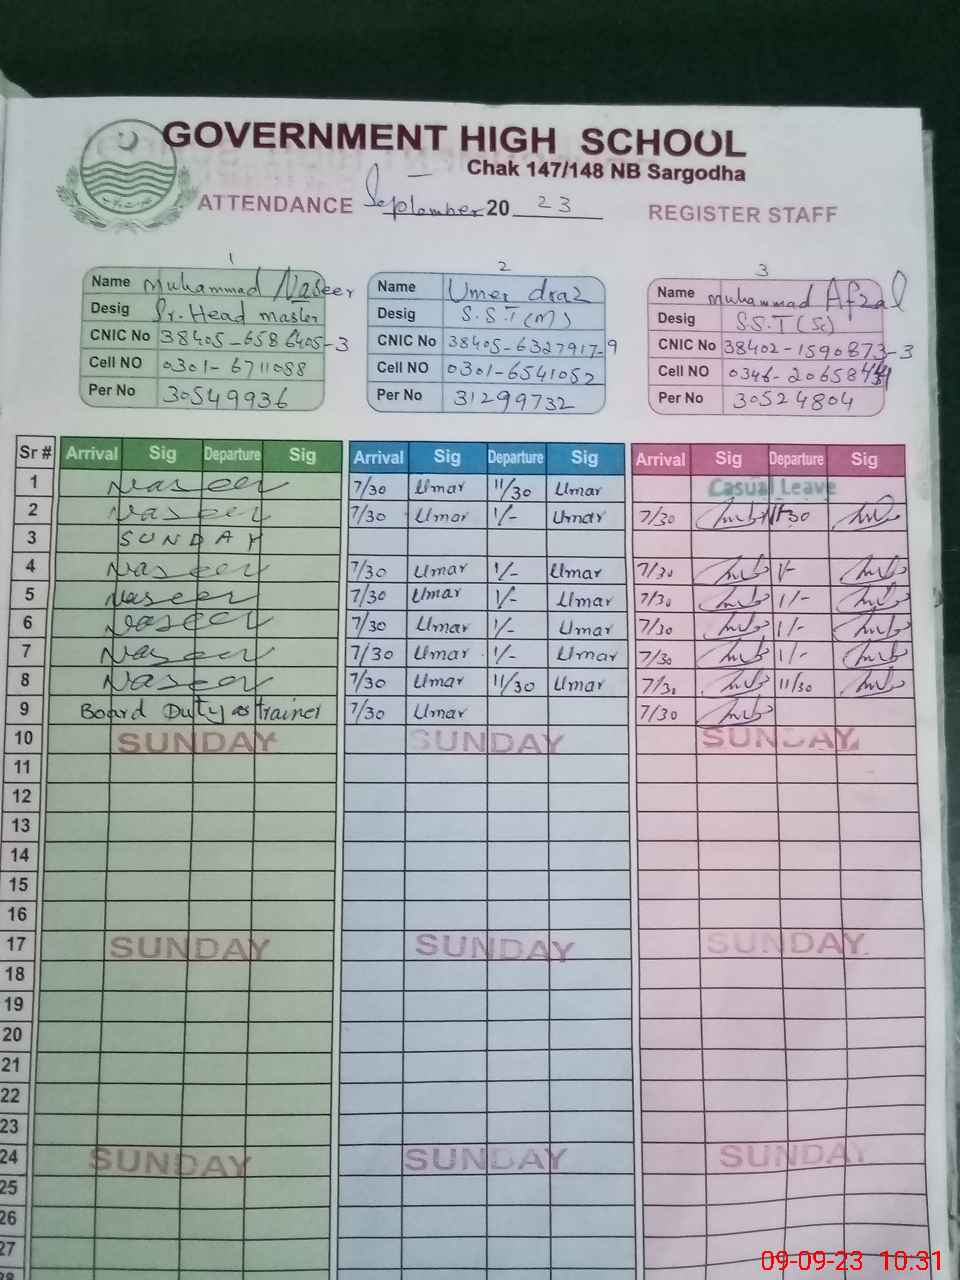 GOVERNMENT HIGH SCHOOL
Chak 147/148 NB Sargodha
ATTENDANCE September 20 23 REGISTER STAFF
1 2 3
Name Muhammad Naseer Name Umer draz Name Muhammad Afzal
Desig Sr. Head master Desig S.S.T (M) Desig S.S.T (Sc)
CNIC No 38405-6586405-3 CNIC No 38405-6327917-9 CNIC No 38402-1590873-3
Cell NO 0301-6711088 Cell NO 0301-6541052 Cell NO
Per No 30549936 Per No 31299732 Per No 30524804
Sr # Arrival Sig Departure Sig Arrival Sig Departure Sig Arrival Sig Departure Sig
1 Naseer 7/30 Umar 11/30 Umar Casual Leave
2 Naseer 7/30 Umar 1/- Umar 7/30 11/30
3 SUNDAY
4 Naseer 7/30 Umar 1/- Umar 7/30 1/-
5 Naseer 7/30 Umar 1/- Umar 7/30 1/-
6 Naseer 7/30 Umar 1/- Umar 7/30 1/-
7 Naseer 7/30 Umar 1/- Umar 7/30 1/-
8 Naseer 7/30 Umar 11/30 Umar 7/30 11/30
9 Board Duty as trainer 7/30 Umar 7/30
10 SUNDAY SUNDAY SUNDAY
11
12
13
14
15
16
17 SUNDAY SUNDAY SUNDAY
18
19
20
21
22
23
24 SUNDAY SUNDAY SUNDAY
25
26
27
28
09-09-23 10.31